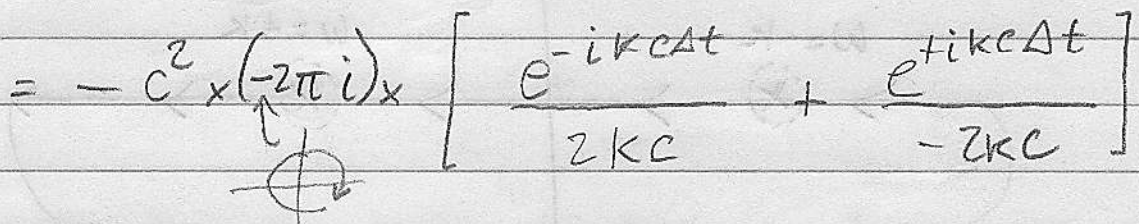 = - c² × (-2πi) × [ e^{-ikcΔt} / 2kc + e^{+ikcΔt} / -2kc ]